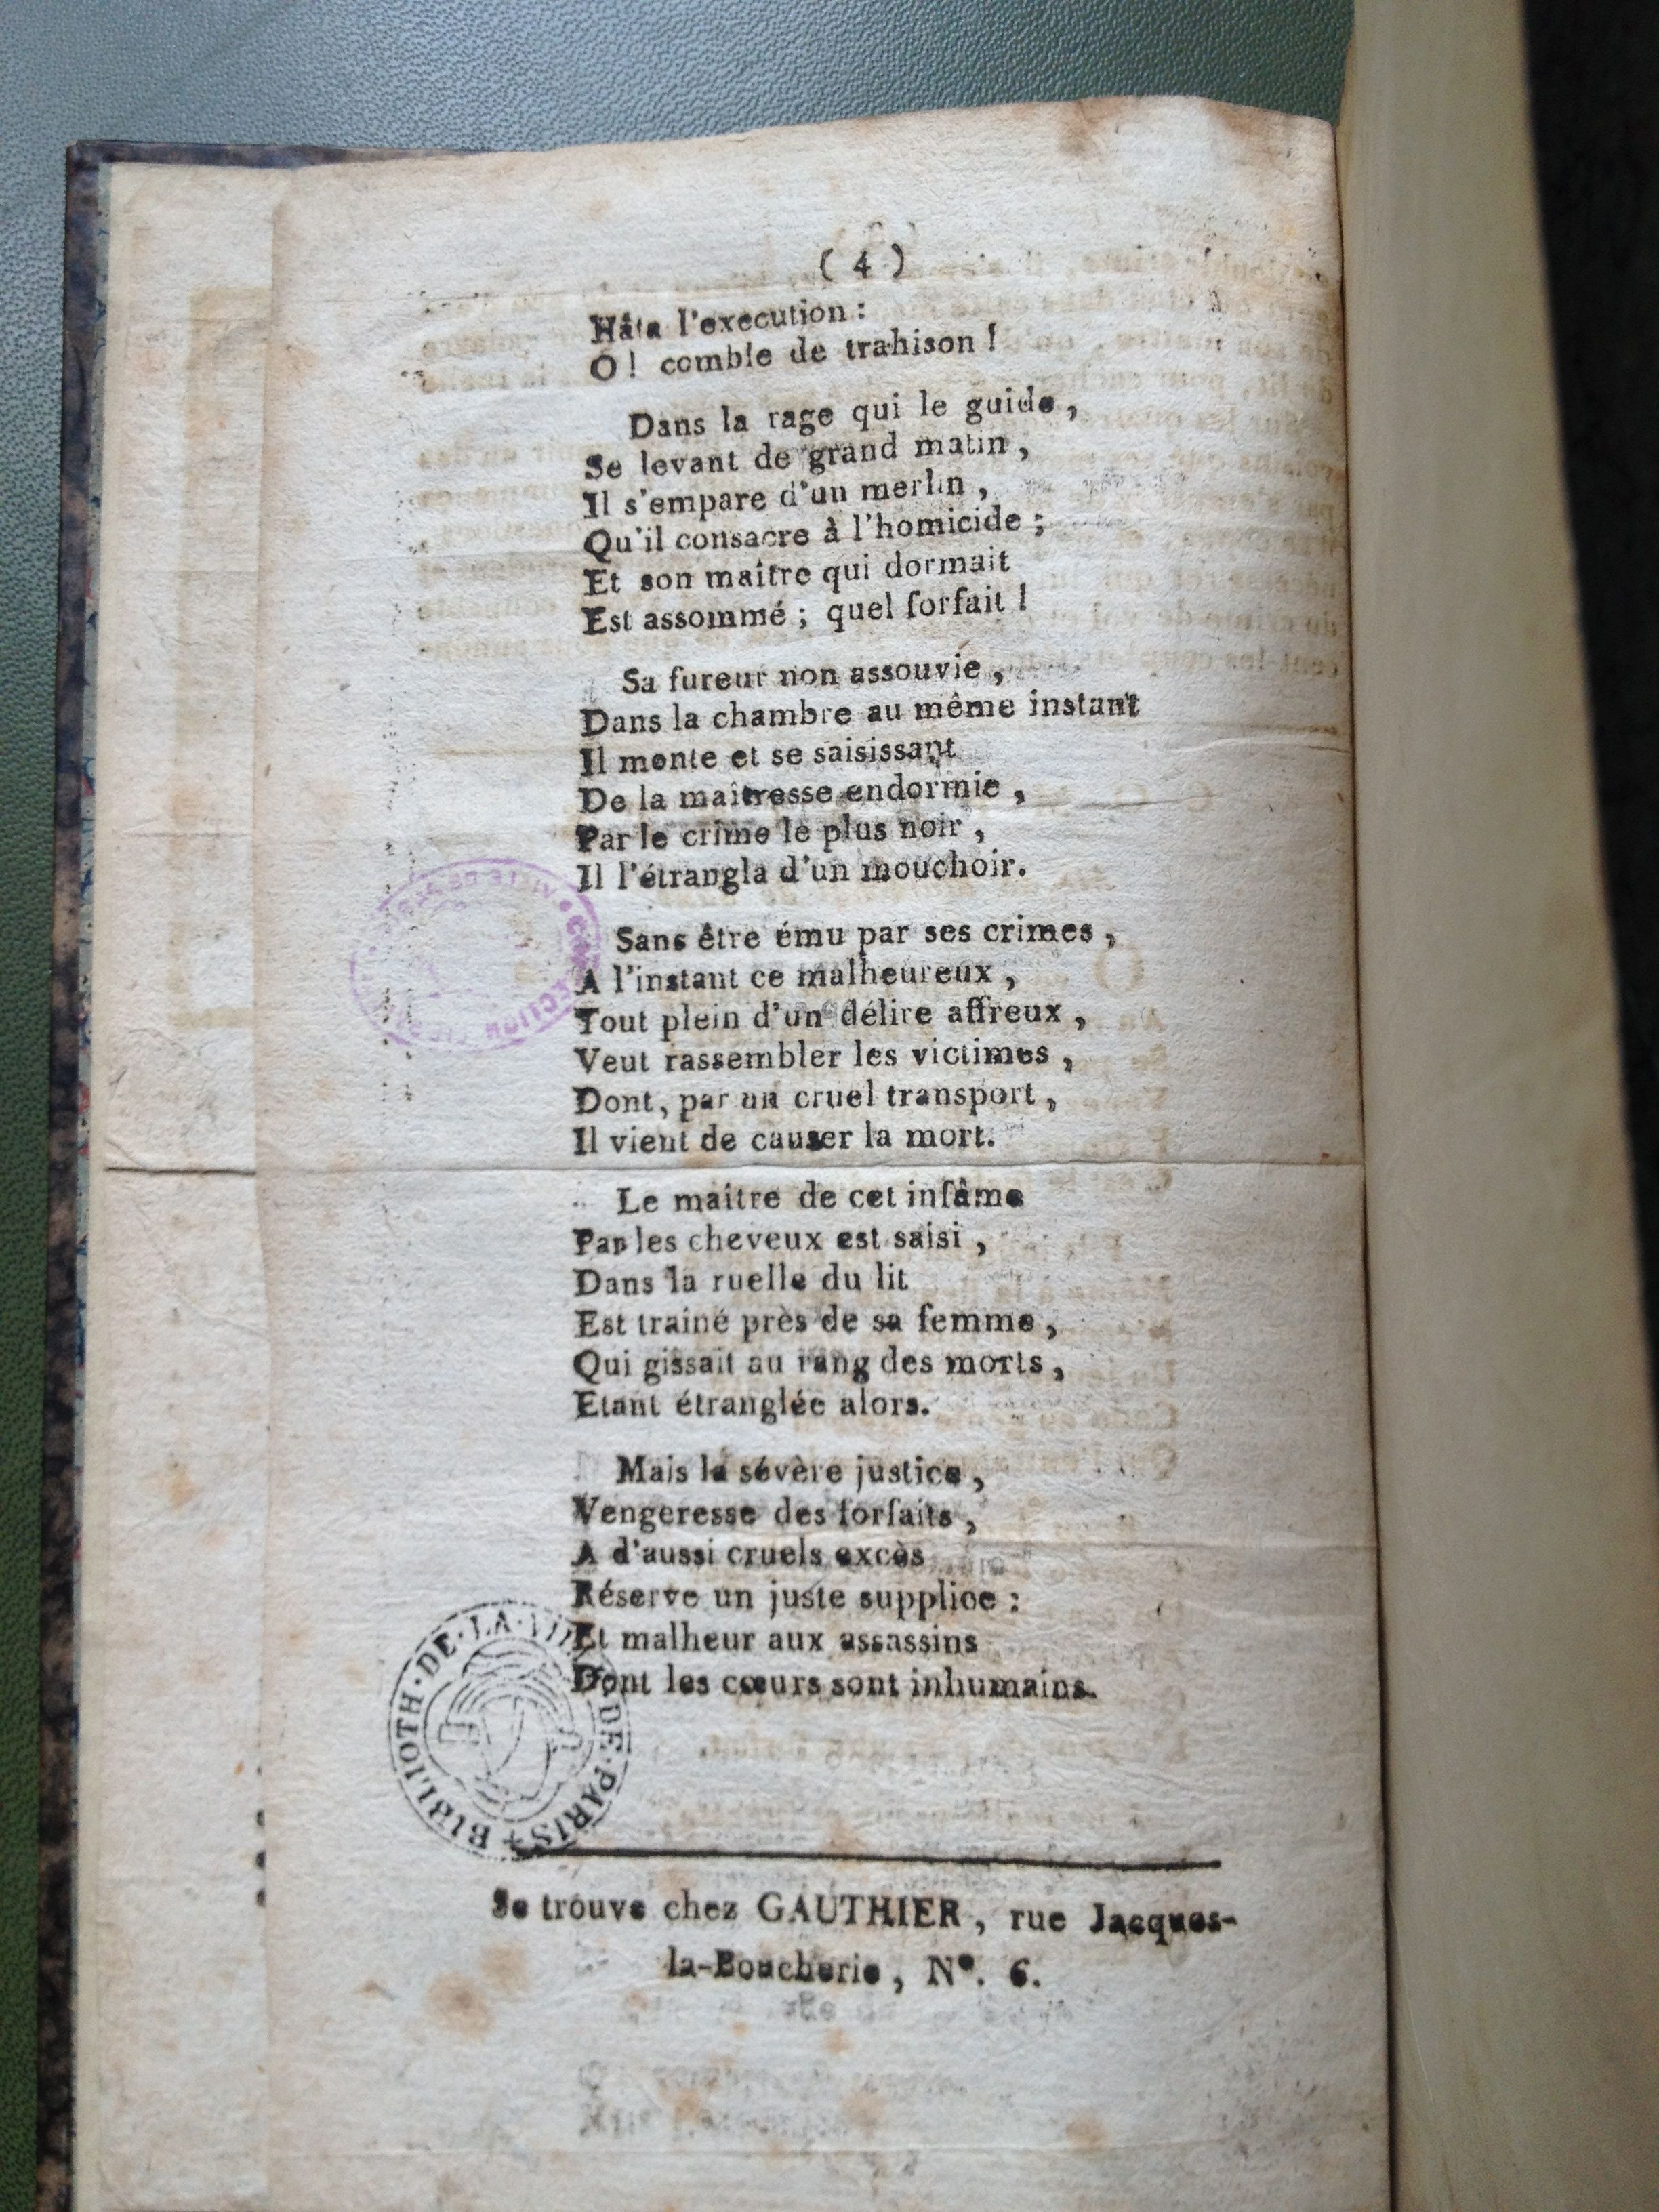 ( 4 )
Hâta l'execution :
O ! comble de trahison !
Dans la rage qui le guide ,
Se levant de grand matin ,
Il s'empare d'un merlin ,
Qu'il consacre à l'homicide ;
Et son maître qui dormait
Est assommé ; quel forfait !
Sa fureur non assouvie ,
Dans la chambre au même instant
Il monte et se saisissant
De la maîtresse endormie ,
Par le crime le plus noir ,
Il l'étrangla d'un mouchoir.
Sans être ému par ses crimes ,
A l'instant ce malheureux ,
Tout plein d'un délire affreux ,
Veut rassembler les victimes ,
Dont, par un cruel transport ,
Il vient de causer la mort.
Le maître de cet infâme
Par les cheveux est saisi ,
Dans la ruelle du lit
Est traîné près de sa femme ,
Qui gissait au rang des morts ,
Etant étranglée alors.
Mais la sévère justice ,
Vengeresse des forfaits ,
A d'aussi cruels excès
Réserve un juste supplice :
Et malheur aux assassins
Dont les cœurs sont inhumains.
BIBLIOTH · DE · LA · VILLE · DE · PARIS
Se trouve chez GAUTHIER , rue Jacques-
la-Boucherie , N°. 6.